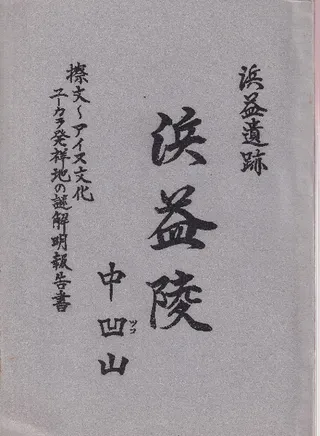 浜益遺跡
浜益陵
擦文〜アイヌ文化
ユーカラ発祥地の謎解明報告書
中凹山
ツコ